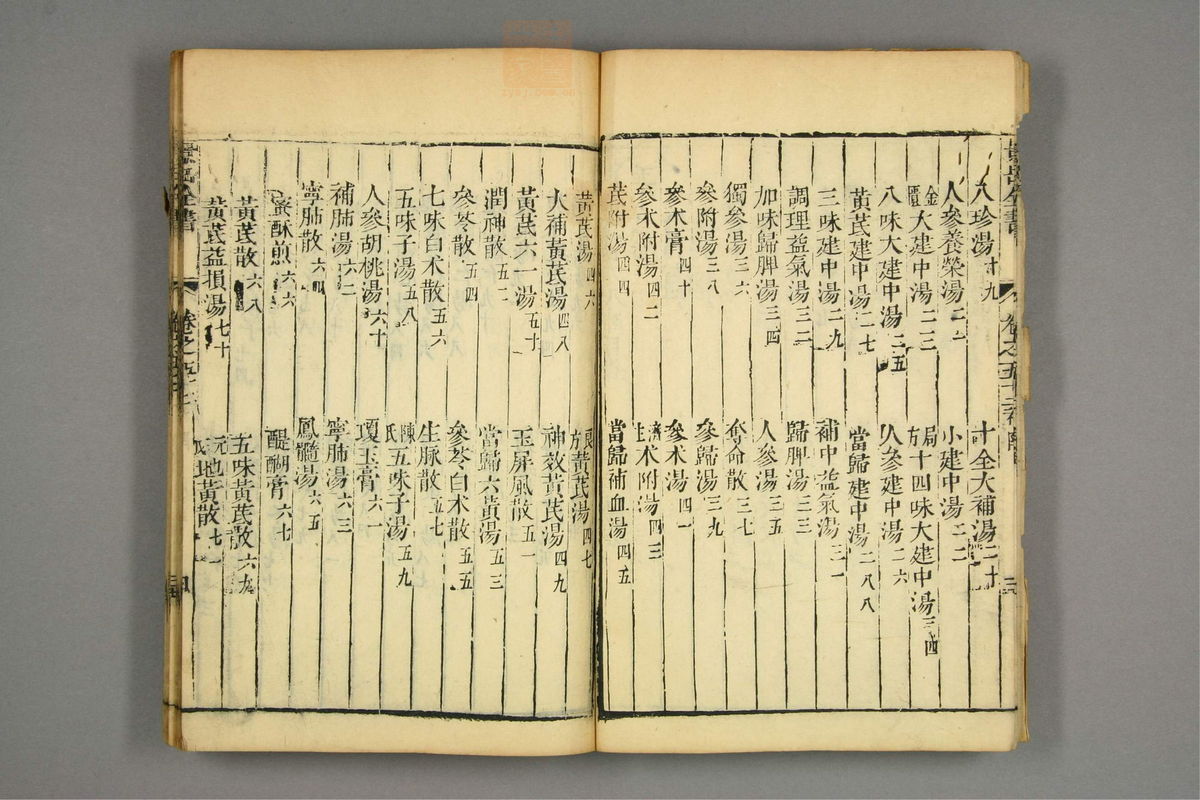 八珍湯 十九 十全大補湯 二十
人參養榮湯 二一 小建中湯 二二
金匱大建中湯 二三 局方十四味大建中湯 二四
八味大建中湯 二五 人參建中湯 二六
黃芪建中湯 二七 當歸建中湯 二八
三味建中湯 二九 補中益氣湯 三一
調理益氣湯 三二 歸脾湯 三三
加味歸脾湯 三四 人參湯 三五
獨參湯 三六 奪命散 三七
參附湯 三八 參歸湯 三九
參术膏 四十 參术湯 四一
參术附湯 四二 濟生术附湯 四三
芪附湯 四四 當歸補血湯 四五
黃芪湯 四六 良方黃芪湯 四七
大補黃芪湯 四八 神效黃芪湯 四九
黃芪六一湯 五十 玉屏風散 五一
潤神散 五二 當歸六黃湯 五三
參苓散 五四 參苓白术散 五五
七味白术散 五六 生脉散 五七
五味子湯 五八 陳氏五味子湯 五九
人參胡桃湯 六十 瓊玉膏 六一
補肺湯 六二 寧肺湯 六三
寧肺散 六四 鳳髓湯 六五
蜜酥煎 六六 醍醐膏 六七
黃芪散 六八 五味黃芪散 六九
黃芪益損湯 七十 地黃散 七一
景岳全書